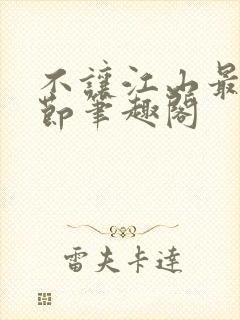 不讓江山最
節筆趣閣
雷夫卡達